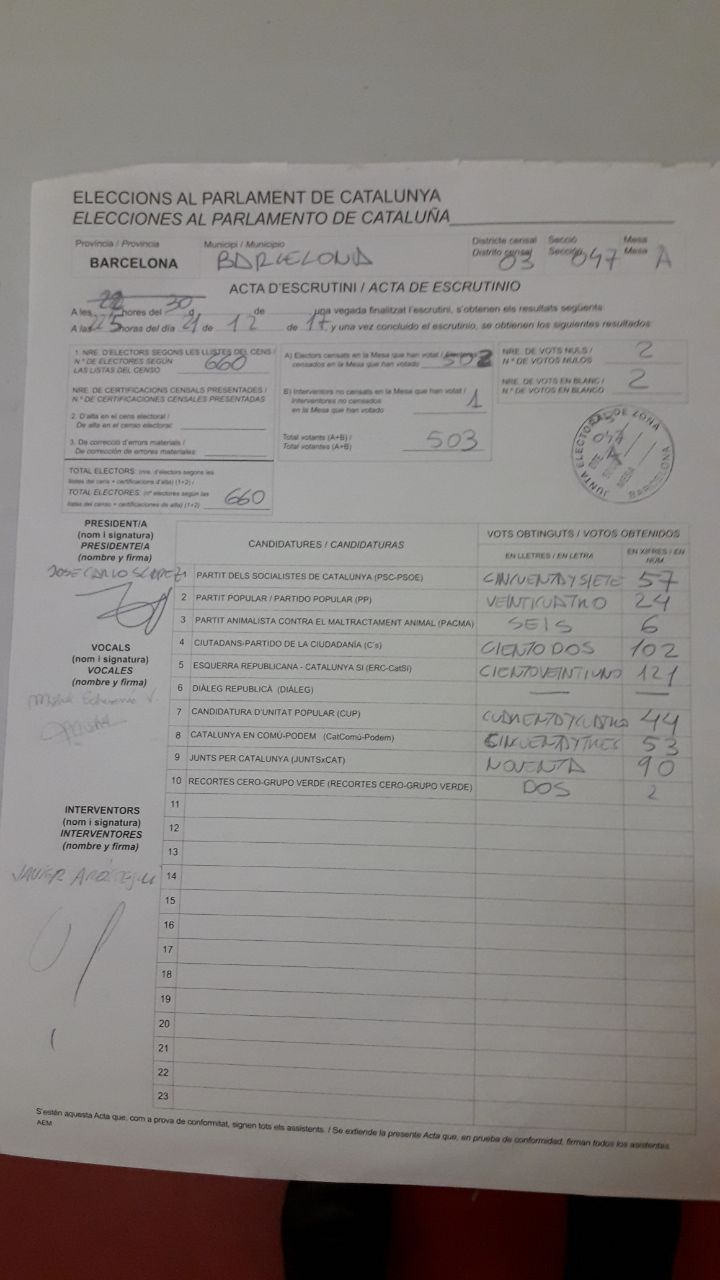 ELECCIONS AL PARLAMENT DE CATALUNYA
ELECCIONES AL PARLAMENTO DE CATALUÑA
Província / Provincia Municipi / Municipio Districte censal Secció Mesa
Distrito censal Sección Mesa
BARCELONA BARCELONA 03 047 A
ACTA D'ESCRUTINI / ACTA DE ESCRUTINIO
22 30
A les hores del d de una vegada finalitzat l'escrutini, s'obtenen els resultats següents:
A las horas del día 21 de 12 de 17 y una vez concluido el escrutinio, se obtienen los siguientes resultados:
1. NRE. D'ELECTORS SEGONS LES LLISTES DEL CENS /
N.º DE ELECTORES SEGÚN
LAS LISTAS DEL CENSO 660
NRE. DE CERTIFICACIONS CENSALS PRESENTADES /
N.º DE CERTIFICACIONES CENSALES PRESENTADAS
2. D'alta en el cens electoral /
De alta en el censo electoral:
3. De correcció d'errors materials /
De corrección de errores materiales:
TOTAL ELECTORS: (nre. d'electors segons les
llistes del cens + certificacions d'alta) (1+2) /
TOTAL ELECTORES: (nº electores según las
listas del censo + certificaciones de alta) (1+2) 660
A) Electors censats en la Mesa que han votat / Electores
censados en la Mesa que han votado 502
B) Interventors no censats en la Mesa que han votat /
Interventores no censados
en la Mesa que han votado 1
Total votants (A+B) /
Total votantes (A+B) 503
NRE. DE VOTS NULS /
N.º DE VOTOS NULOS 2
NRE. DE VOTS EN BLANC /
N.º DE VOTOS EN BLANCO 2
JUNTA ELECTORAL DE ZONA
BARCELONA
MESA
PRESIDENT/A
(nom i signatura)
PRESIDENTE/A
(nombre y firma)
JOSE CARLOS LOPEZ
VOCALS
(nom i signatura)
VOCALES
(nombre y firma)
INTERVENTORS
(nom i signatura)
INTERVENTORES
(nombre y firma)
JAVIER
CANDIDATURES / CANDIDATURAS VOTS OBTINGUTS / VOTOS OBTENIDOS
EN LLETRES / EN LETRA EN XIFRES / EN NÚM
1 PARTIT DELS SOCIALISTES DE CATALUNYA (PSC-PSOE) CINCUENTA Y SIETE 57
2 PARTIT POPULAR / PARTIDO POPULAR (PP) VEINTICUATRO 24
3 PARTIT ANIMALISTA CONTRA EL MALTRACTAMENT ANIMAL (PACMA) SEIS 6
4 CIUTADANS-PARTIDO DE LA CIUDADANÍA (C's) CIENTO DOS 102
5 ESQUERRA REPUBLICANA - CATALUNYA SI (ERC-CatSí) CIENTO VEINTIUNO 121
6 DIÀLEG REPUBLICÀ (DIÀLEG) — —
7 CANDIDATURA D'UNITAT POPULAR (CUP) CUARENTA Y CUATRO 44
8 CATALUNYA EN COMÚ-PODEM (CatComú-Podem) CINCUENTA Y TRES 53
9 JUNTS PER CATALUNYA (JUNTSxCAT) NOVENTA 90
10 RECORTES CERO-GRUPO VERDE (RECORTES CERO-GRUPO VERDE) DOS 2
11
12
13
14
15
16
17
18
19
20
21
22
23
S'estén aquesta Acta que, com a prova de conformitat, signen tots els assistents. / Se extiende la presente Acta que, en prueba de conformidad, firman todos los asistentes.
AEM